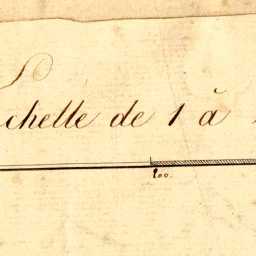 chelle de 1 à
100.